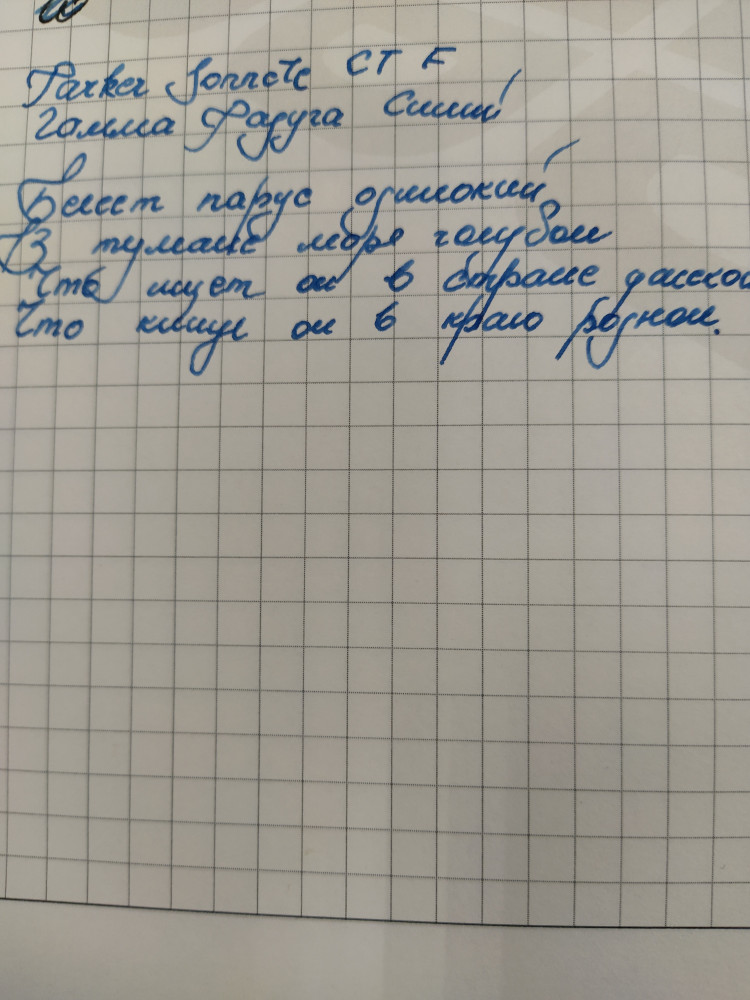 Parker Sonnete CT F
Гамма Радуга Синий
Белеет парус одинокий
В тумане море голубом
Что ищет он в стране далекой
Что кинул он в краю родном.